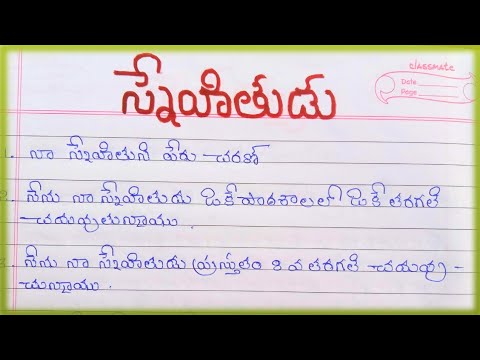 classmate
Date
Page
స్నేహితుడు
1. నా స్నేహితుని పేరు -చరణ్
2. నేను నా స్నేహితుడు ఒకే పాఠశాలలో ఒకే తరగతి
-చదువుతున్నాము.
3. నేను నా స్నేహితుడు ప్రస్తుతం 8 వ తరగతి -చదువు-
-చున్నాము.